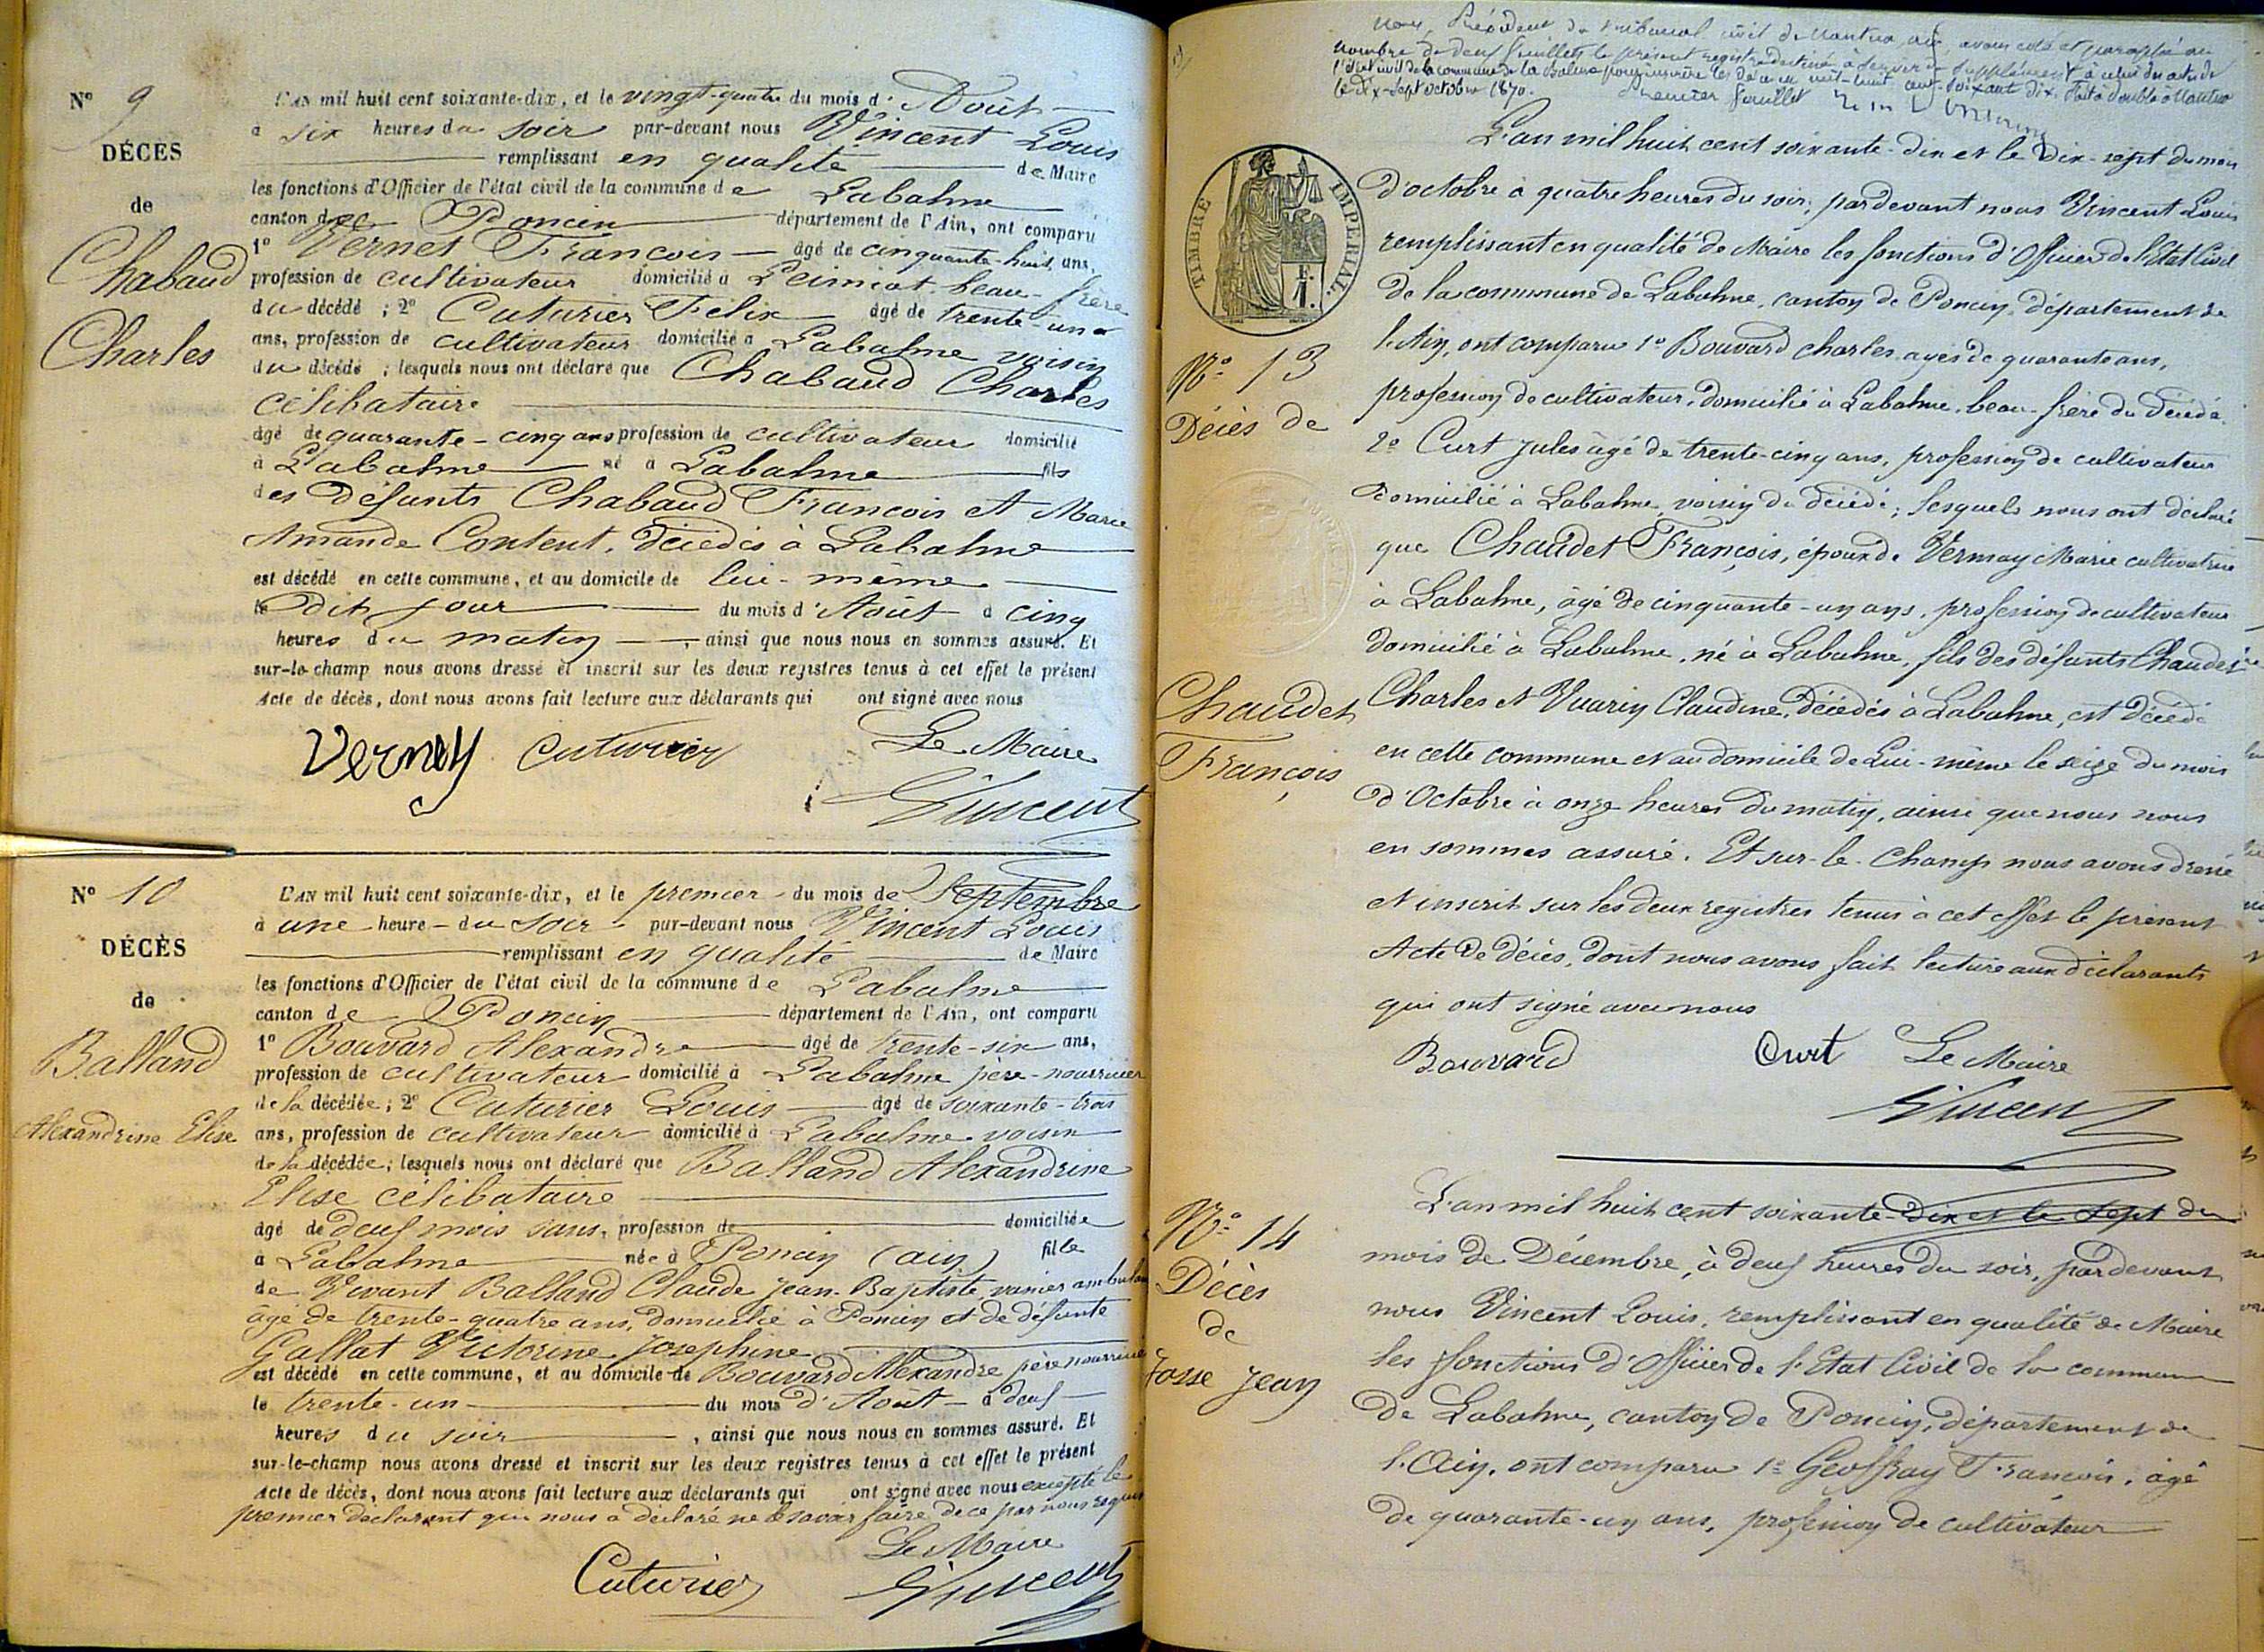 N° 9
DÉCÈS
de
Chabaud
Charles
L'AN mil huit cent soixante-dix, et le vingt-quatre du mois d'Août
à six heures du soir par-devant nous Vincent Louis
remplissant en qualité de Maire
les fonctions d'Officier de l'état civil de la commune de Labalme
canton de Poncin département de l'Ain, ont comparu
1° Vernet François âgé de cinquante-huit ans,
profession de cultivateur domicilié à Leimiat beau-frère
du décédé ; 2° Cuturier Félix âgé de trente-un
ans, profession de cultivateur domicilié à Labalme voisin
du décédé ; lesquels nous ont déclaré que Chabaud Charles
célibataire
âgé de quarante-cinq ans profession de cultivateur domicilié
à Labalme né à Labalme fils
des défunts Chabaud François et Marie
Amande Content, décédés à Labalme
est décédé en cette commune, et au domicile de lui-même
le dit jour du mois d'Août à cinq
heures du matin, ainsi que nous nous en sommes assuré. Et
sur-le-champ nous avons dressé et inscrit sur les deux registres tenus à cet effet le présent
Acte de décès, dont nous avons fait lecture aux déclarants qui ont signé avec nous
Verney Cuturier Le Maire
Vincent
N° 10
DÉCÈS
de
Balland
Alexandrine Elise
L'AN mil huit cent soixante-dix, et le premier du mois de Septembre
à une heure du soir par-devant nous Vincent Louis
remplissant en qualité de Maire
les fonctions d'Officier de l'état civil de la commune de Labalme
canton de Poncin département de l'Ain, ont comparu
1° Bouvard Alexandre âgé de trente-six ans,
profession de cultivateur domicilié à Labalme père-nourricier
de la décédée ; 2° Cuturier Louis âgé de soixante-trois
ans, profession de cultivateur domicilié à Labalme voisin
de la décédée ; lesquels nous ont déclaré que Balland Alexandrine
Elise célibataire
âgé de deux mois sans, profession de domiciliée
à Labalme née à Poncin (ain) fille
de Vivant Balland Claude Jean-Baptiste, vanier
âgé de trente-quatre ans, domicilié à Poncin et de défunte
Gallat Victorine Josephine
est décédé en cette commune, et au domicile de Bouvard Alexandre père nourricier
le trente-un du mois d'Août à deux
heures du soir, ainsi que nous nous en sommes assuré. Et
sur-le-champ nous avons dressé et inscrit sur les deux registres tenus à cet effet le présent
Acte de décès, dont nous avons fait lecture aux déclarants qui ont signé avec nous excepté le
premier déclarant qui nous a déclaré ne le savoir faire de ce par nous requis
Le Maire
Cuturier Vincent
Nous, Président du tribunal civil de Nantua, avons coté et paraphé au
nombre de deux feuillets le présent registre destiné à servir de supplément à celui des actes de
l'état civil de la commune de La Balme pour inscrire les décès en mil-huit cent-soixante dix. Fait à double à Nantua
le dix-sept octobre 1870. Premier feuillet
TIMBRE IMPÉRIAL
N° 13
Décès de
Chaudet
François
L'an mil huit cent soixante-dix et le dix-sept du mois
d'octobre à quatre heures du soir, pardevant nous Vincent Louis
remplissant en qualité de Maire les fonctions d'Officier de l'Etat Civil
de la commune de Labalme, canton de Poncin, département de
l'Ain, ont comparu 1° Bouvard charles agés de quarante ans,
profession de cultivateur, domicilié à Labalme, beau-frère du décédé.
2° Curt Jules âgé de trente-cinq ans, profession de cultivateur
domicilié à Labalme, voisin du décédé ; lesquels nous ont déclaré
que Chaudet François, époux de Vermay Marie cultivatrice
à Labalme, âgé de cinquante-un ans, profession de cultivateur
domicilié à Labalme, né à Labalme, fils des défunts Chaudet
Charles et Vuarin Claudine, décédés à Labalme, est décédé
en cette commune et au domicile de Lui-même le seize du mois
d'Octobre à onze heures du matin, ainsi que nous nous
en sommes assuré. Et sur-le-Champ nous avons dressé
et inscrit sur les deux registres tenus à cet effet le présent
Acte de décès, dont nous avons fait lecture aux déclarants
qui ont signé avec nous
Bouvard Curt Le Maire
Vincent
N° 14
Décès
de
Fosse Jean
L'an mil huit cent soixante-dix et le sept du
mois de Décembre, à deux heures du soir, pardevant
nous Vincent Louis, remplissant en qualité de Maire
les fonctions d'Officier de l'Etat Civil de la commune
de Labalme, canton de Poncin, département de
l'Ain, ont comparu 1° Geoffray François, âgé
de quarante-un ans, profession de cultivateur